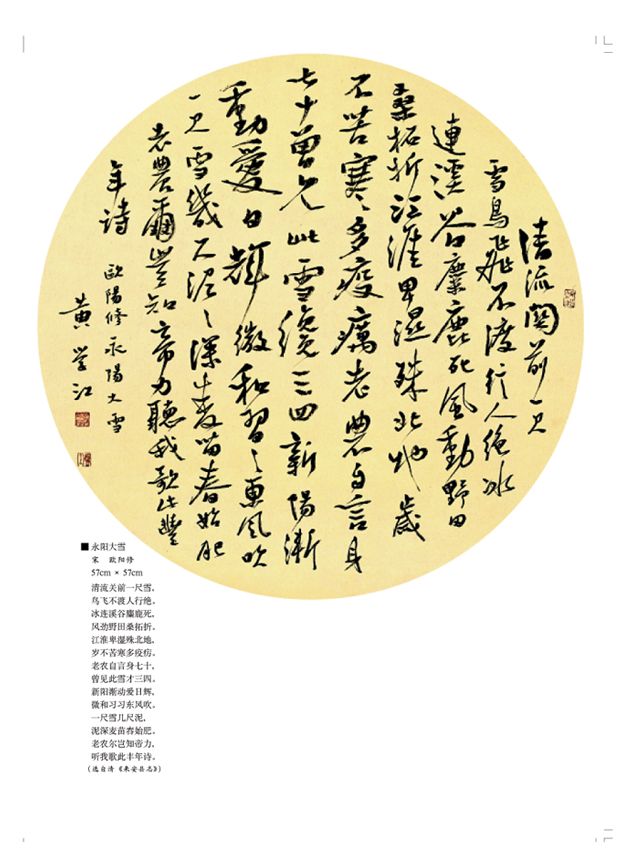 清流關前一尺
雪鳥飛不渡行人絶冰
連溪谷麋鹿死風動野田
桑柘折江淮卑濕殊北地歲
不苦寒多疫癘老農自言身
七十曾見此雪纔三四新陽漸
動愛日輝微和習〻東風吹
一尺雪幾尺泥〻深麥苗春始肥
老農爾豈知帝力聽我歌此豐
年诗
歐陽修永陽大雪
黄学江
■永阳大雪
宋 欧阳修
57cm × 57cm
清流关前一尺雪,
鸟飞不渡人行绝。
冰连溪谷麋鹿死,
风劲野田桑拓折。
江淮卑湿殊北地,
岁不苦寒多疫疠。
老农自言身七十,
曾见此雪才三四。
新阳渐动爱日辉,
微和习习东风吹。
一尺雪几尺泥,
泥深麦苗春始肥。
老农尔岂知帝力,
听我歌此丰年诗。
(选自清《来安县志》)